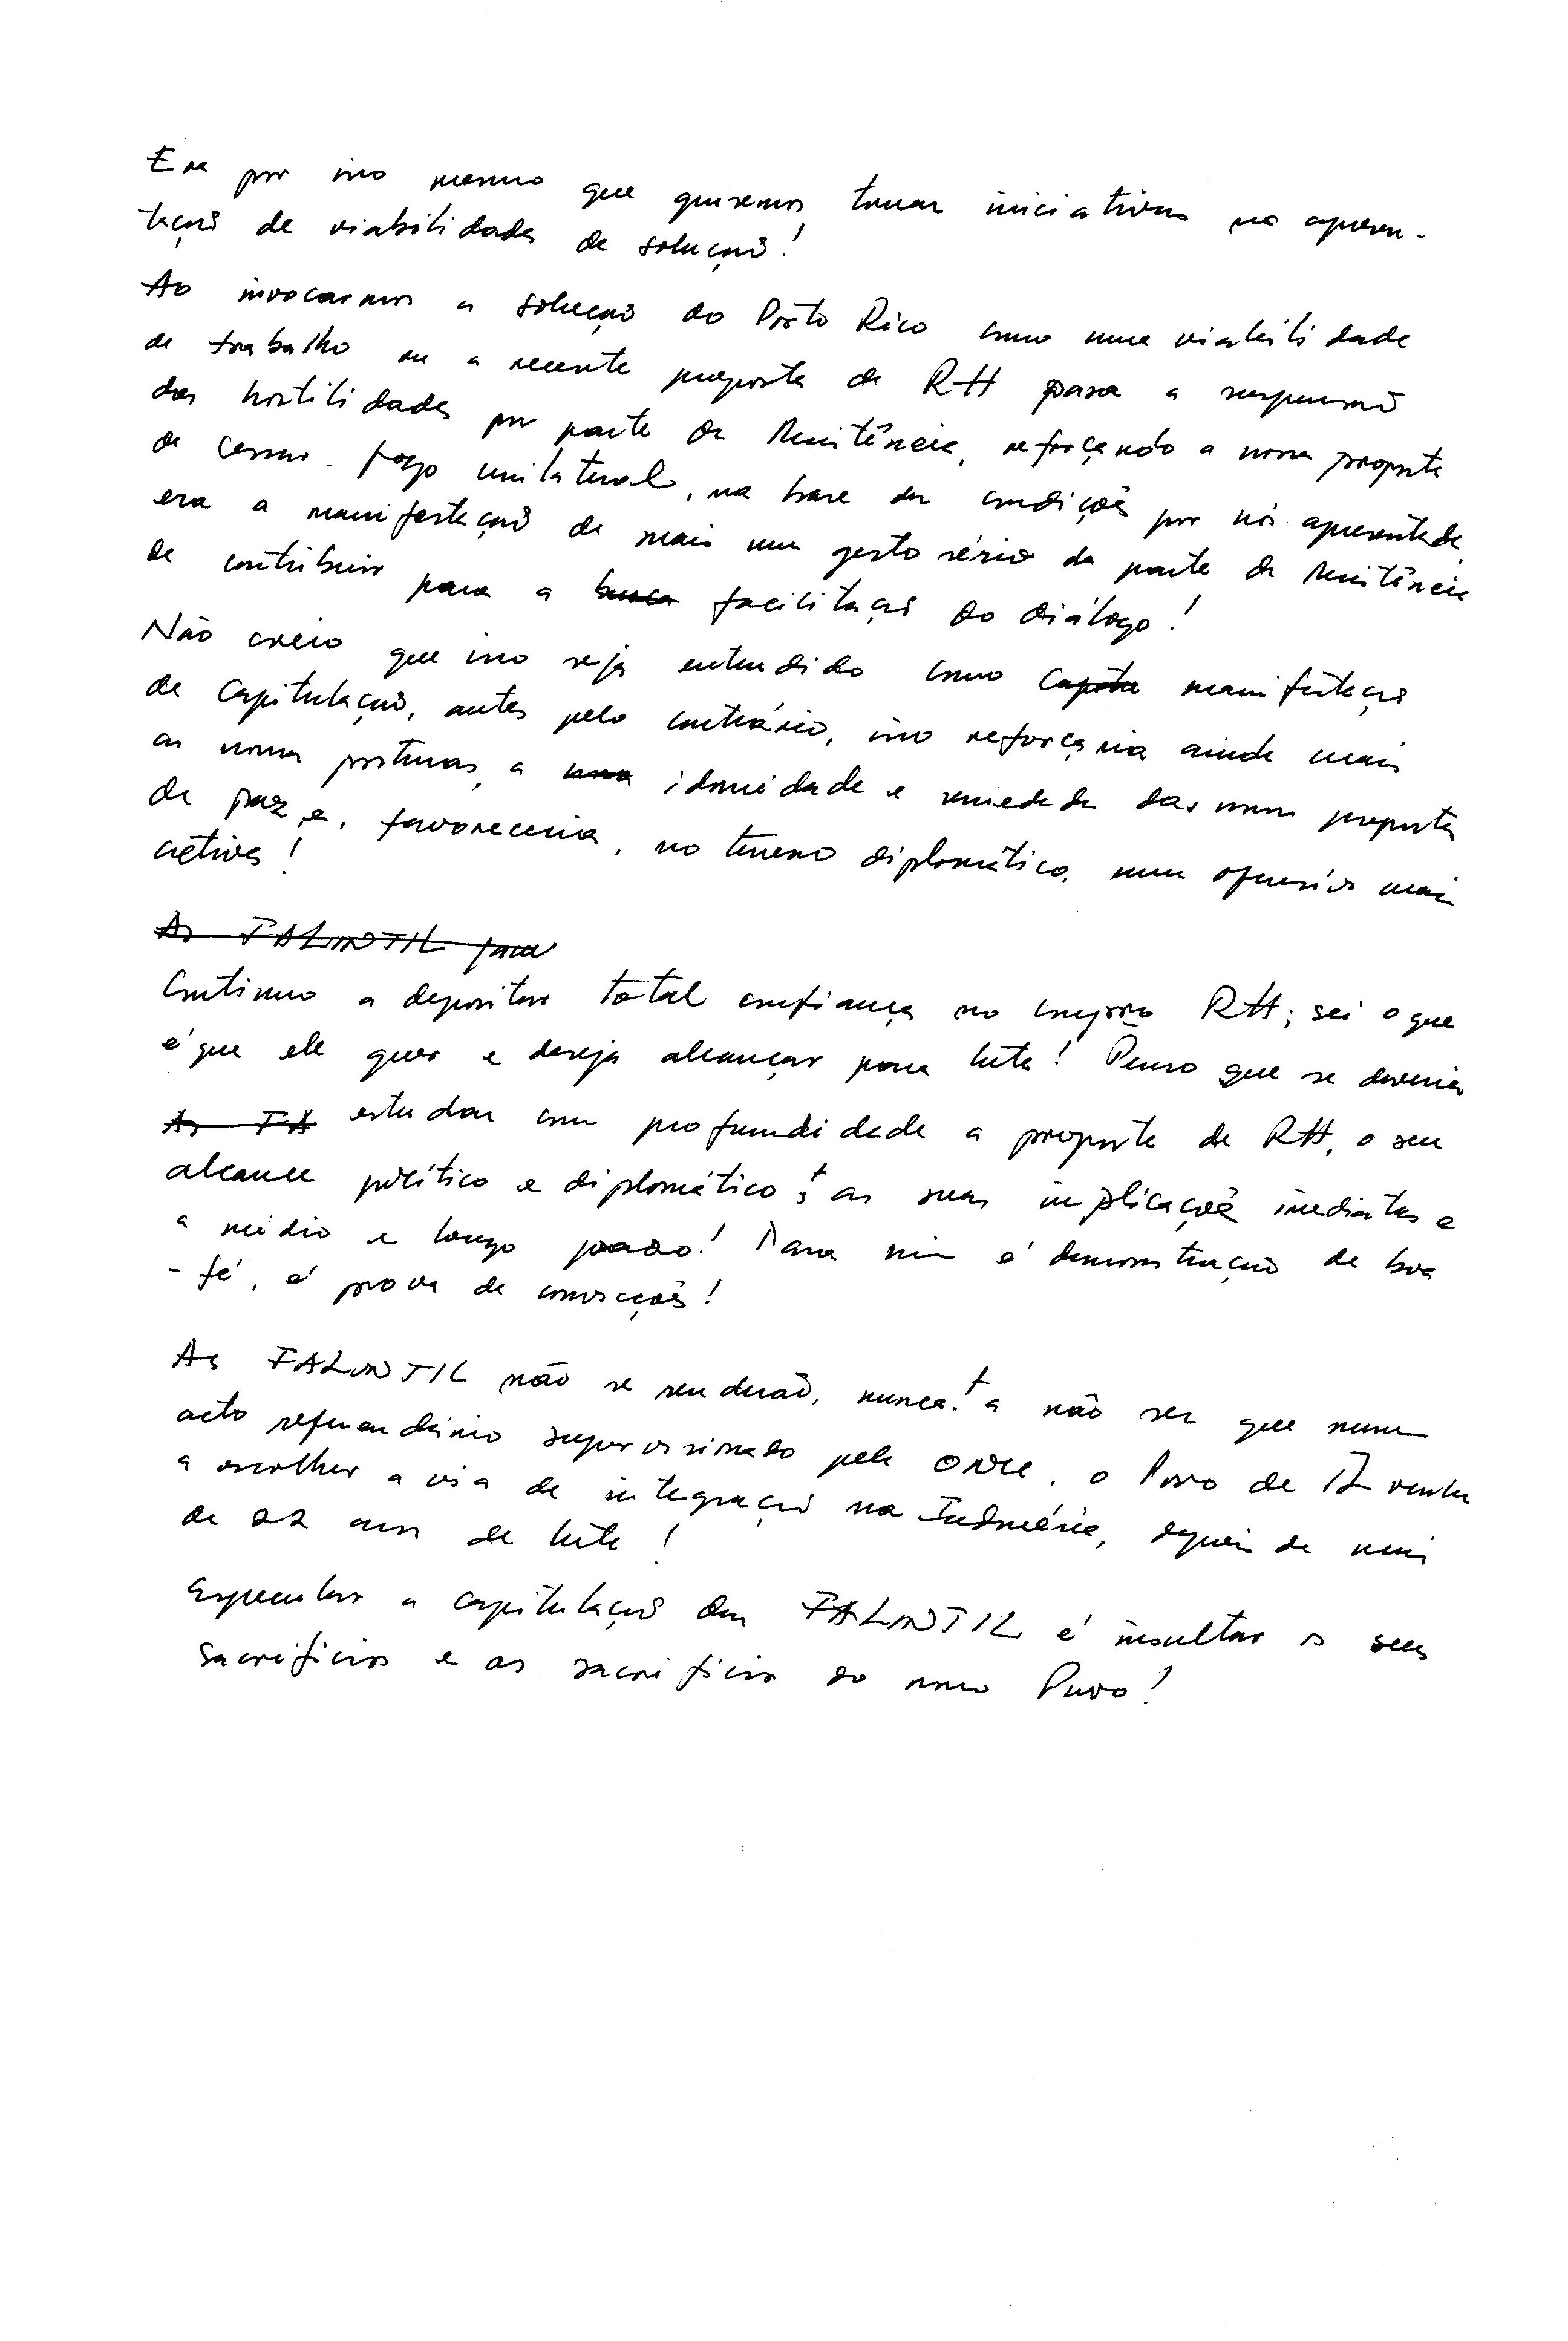 Era por isso mesmo que quisemos tomar iniciativas na apresen-
tação de viabilidades de solução!
Ao invocarmos a solução do Porto Rico como uma viabilidade
de trabalho ou a recente proposta de RH para a suspensão
das hostilidades por parte da Resistência, reforçando a nossa proposta
de cessar-fogo unilateral, na base das condições por nós apresentadas,
era a manifestação de mais um gesto sério da parte da Resistência
de contribuir para a busca facilitação do diálogo!
Não creio que isso seja entendido como Capitu manifestação
de Capitulação, antes pelo contrário, isso reforçaria ainda mais
as nossas posturas, a idoneidade e seriedade das nossas propostas
de paz, e, favoreceria, no terreno diplomático, uma ofensiva mais
activa!
As FALINTIL
Continuo a depositar total confiança no compº RH; sei o que
é que ele quer e deseja alcançar para luta! Penso que se deveria
As FA estudar com profundidade a proposta de RH, o seu
alcance político e diplomático; as suas implicações imediatas e
a médio e longo prazo! Para mim é demonstração de boa
-fé, é prova de convicções!
As FALINTIL não se renderão, nunca! a não ser que num
acto referendário supervisionado pela ONU, o Povo de TL venha
a escolher a via de integração na Indonésia, depois de mais
de 22 anos de luta!
Especular a capitulação das FALINTIL é insultar os seus
sacrifícios e os sacrifícios do nosso Povo!